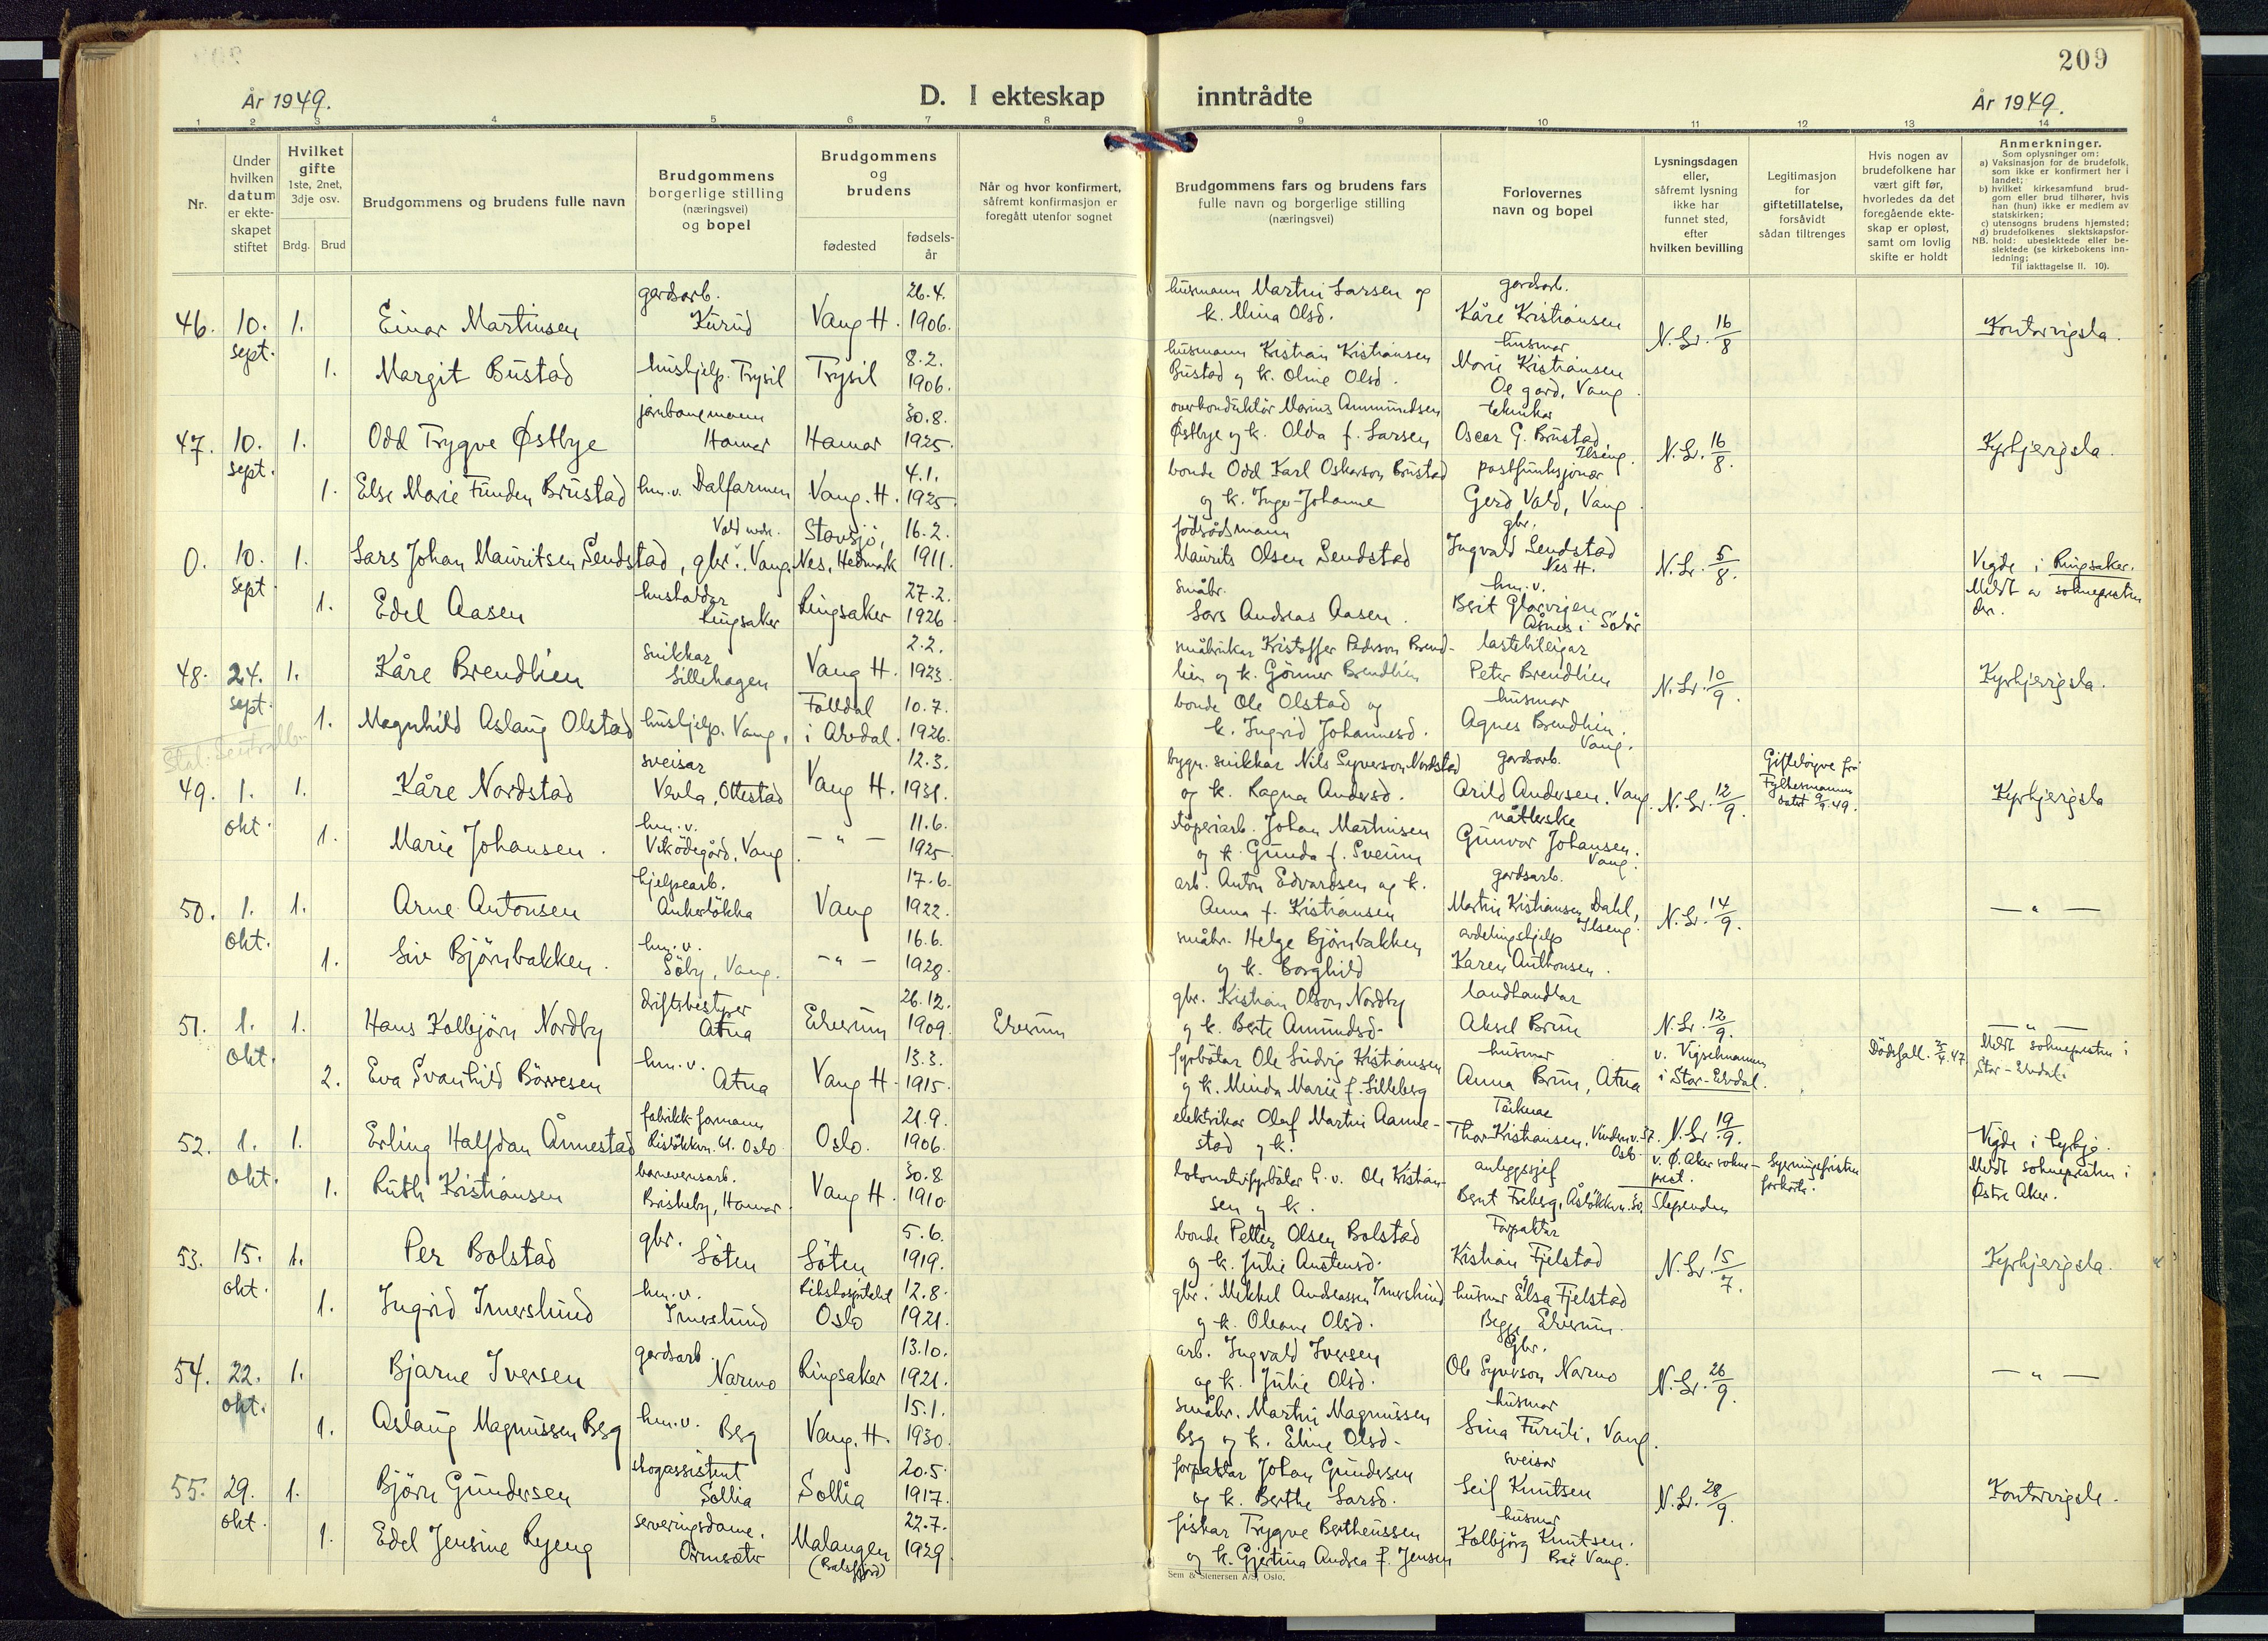 209
År 1949.
D. I ekteskap inntrådte
År 1949.
1 2 3 4 5 6 7 8 9 10 11 12 13 14
Nr.
Under hvilken datum er ekteskapet stiftet
Hvilket gifte
1ste, 2net, 3dje osv.
Brdg. Brud
Brudgommens og brudens fulle navn
Brudgommens borgerlige stilling (næringsvei) og bopel
Brudgommens og brudens
fødested
fødsels-år
Når og hvor konfirmert, såfremt konfirmasjon er foregått utenfor sognet
Brudgommens fars og brudens fars fulle navn og borgerlige stilling (næringsvei)
Forlovernes navn og bopel
Lysningsdagen eller, såfremt lysning ikke har funnet sted, efter hvilken bevilling
Legitimasjon for giftetillatelse, forsåvidt sådan tiltrenges
Hvis nogen av brudefolkene har vært gift før, hvorledes da det foregående ekteskap er opløst, samt om lovlig skifte er holdt
Anmerkninger.
Som oplysninger om:
a) Vaksinasjon for de brudefolk, som ikke er konfirmert her i landet;
b) hvilket kirkesamfund brudgom eller brud tilhører, hvis han (hun) ikke er medlem av statskirken;
c) utensogns brudens hjemsted;
d) brudefolkenes slektskapsforhold: ubeslektede eller beslektede (se kirkebokens innledning;
NB.
Til iakttagelse II. 10).
46. 10. sept. 1. Einar Martinsen gardsarb. Kurud Vang H. 26.4. 1906. husmann Martin Larsen og k. Mina Olsd. gardsarb. Kåre Kristiansen N. Lr. 16/8 Kontorvigsla.
1. Margit Bustad hushjelp. Trysil Trysil 8.2. 1906. husmann Kristian Kristiansen Bustad og k. Oline Olsd. husmor Marie Kristiansen Oe gard, Vang
47. 10. sept. 1. Odd Trygve Østbye jernbanemann Hamar Hamar 30.8. 1925. overkonduktør Marius Ammundsen Østbye og k. Olda f. Larsen teknikar Oscar G. Brustad, Ilseng. N. Lr. 16/8. Kyrkjevigsla.
1. Else Marie Funden Brustad hm.v. Dalfarmen Vang. H. 4.1. 1925. bonde Odd Karl Oskarson Brustad og k. Inger-Johanne postfunksjonær Gerd Vald, Vang
0. 10. sept 1. Lars Johan Mauritsen Sendstad, gbr. Vald Vang. Stavsjø, Nes, Hedmark 16.2. 1911. fødrådsmann Maurits Olsen Sendstad gbr. Ingvald Sendstad Nes H. N. Lr. 5/8. Vigde i Ringsaker. Meldt av soknepresten der.
1. Edel Aasen husholdar Ringsaker Ringsaker 27.2. 1926 småbr. Lars Andreas Aasen. hm.v. Berit Glorvigen Åsnes i Solør
48. 24. sept. 1. Kåre Brendlien snikkar Lillehagen Vang H. 2.2. 1923. småbrukar Kristoffer Pederson Brendlien og k. Gönner Brendlien lastebileigar Peter Brendlien N. Lr. 10/9. Kyrkjevigsla.
1. Magnhild Aslaug Olstad hushjelp. Vang, Folldal i Alvdal. 10.7. 1926. bonde Ole Olstad og k. Ingrid Johannesd. husmor Agnes Brendlien. Vang.
49. 1. okt. 1. Kåre Nordstad sveisar Vevla, Ottestad Vang H. 12.3. 1931. bygn. snikkar Nils Syverson Nordstad og k. Ragna Andersd. gardsarb. Arild Andersen. Vang N. Lr. 12/9. Gifteløyve frå Fylkesmannen datert 9/9.49. Kyrkjevigsla
1. Marie Johansen. hm.v. Vikødegård, Vang — " — 11.6. 1925. støperiarb. Johan Martinsen og k. Gunda f. Sveum nåtlerske Gunvor Johansen. Vang.
50. 1. okt. 1. Arne Antonsen hjelpearb. Ankerløkka Vang 17.6. 1922. arb. Anton Edvardsen og k. Anna f. Kristiansen gardsarb. Martin Kristiansen Dahl, Ilseng. N. Lr. 14/9. — " —
1. Siv Bjørnbakken. hm.v. Søby, Vang. — " — 16.6. 1928. småbr. Helge Bjørnbakken og k. Borghild avdelingshjelp Karen Anthonsen.
51. 1. okt. 1. Hans Kolbjørn Nordby driftsbestyrer Atna Elverum 26.12. 1909. Elverum gbr. Kristian Olson Nordby og k. Berte Amundsd. landhandlar Aksel Brun N. Lr. 12/9. v. Vigselmannen i Stor-Elvdal. — " — Meldt soknepresten i Stor-Elvdal.
2. Eva Svanhild Børresen hm.v. Atna Vang H. 13.3. 1915. fyrbøtar Ole Ludvig Kristiansen og k. Minda Marie f. Lilleberg husmor Anna Brun, Atna Dødsfall.
52. 1. okt. 1. Erling Halfdan Ånnestad fabrikk-formann Risløkkvn. 61. Oslo Oslo. 21.9. 1906. elektrikar Olaf Martin Aannestad og k. Thor Kristiansen, Oslo. N. Lr. 19/9. v. Ø. Aker sokneprest. Lysningsfristen forkorta. Vigde i kyrkje. Meldt soknepresten i Østre Aker.
1. Ruth Kristiansen barnevernsarb. Briskeby, Hamar Vang H. 30.8. 1910 lokomotivfyrbøter Ole Kristiansen og k. anleggssjef Slependen
53. 15. okt. 1. Per Bolstad gbr. Løten Løten 5.6. 1919. bonde Petter Olsen Bolstad og k. Julie Austensd. Forpaktar Kristian Fjelstad N. Lr. 15/7. Kyrkjevigsla.
1. Ingrid Imerslund hm.v. Imerslund Rikshospitalet Oslo 12.8. 1921. gbr. Mikkel Andreassen Imerslund og k. Oleane Olsd. husmor Elsa Fjelstad Begge Elverum.
54. 22. okt. 1. Bjarne Iversen gardsarb. Narmo Ringsaker 13.10. 1921. arb. Ingvald Iversen og k. Julie Olsd. Gbr. Ole Syverson Narmo N. Lr. 26/9. — " —
1. Aslaug Magnussen Berg hm.v. Berg Vang. H. 15.1. 1930. småbr. Martin Magnussen Berg og k. Eline Olsd. husmor Lina Furuli, Vang.
55. 29. okt. 1. Bjørn Gundersen skogassistent Sollia Sollia 20.5. 1917. forpaktar Johan Gundersen og k. Berthe Larsd. sveisar Leif Knutsen N. Lr. 28/9. Kontorvigsle.
1. Edel Jensine Ryeng serveringsdame. Ormseter Malangen (Balsfjord) 22.7. 1929 fiskar Trygve Bertheussen og k. Gjertina Andrea f. Jensen husmor Kolbjørg Knutsen. Vang.
Sem & Stenersen A/S, Oslo.